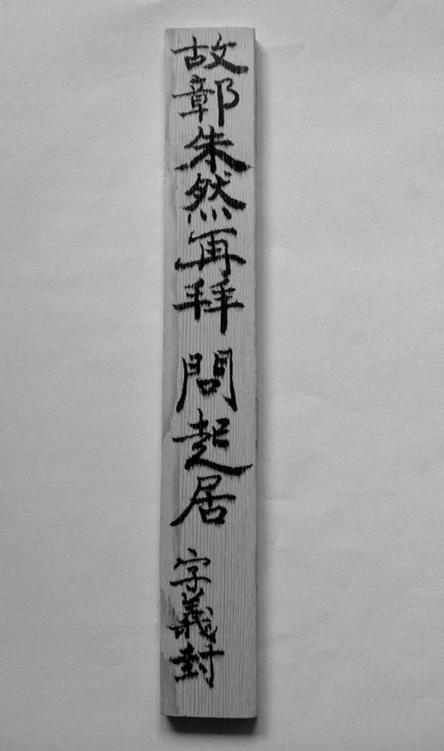 故鄣朱然再拜 問起居 字義封